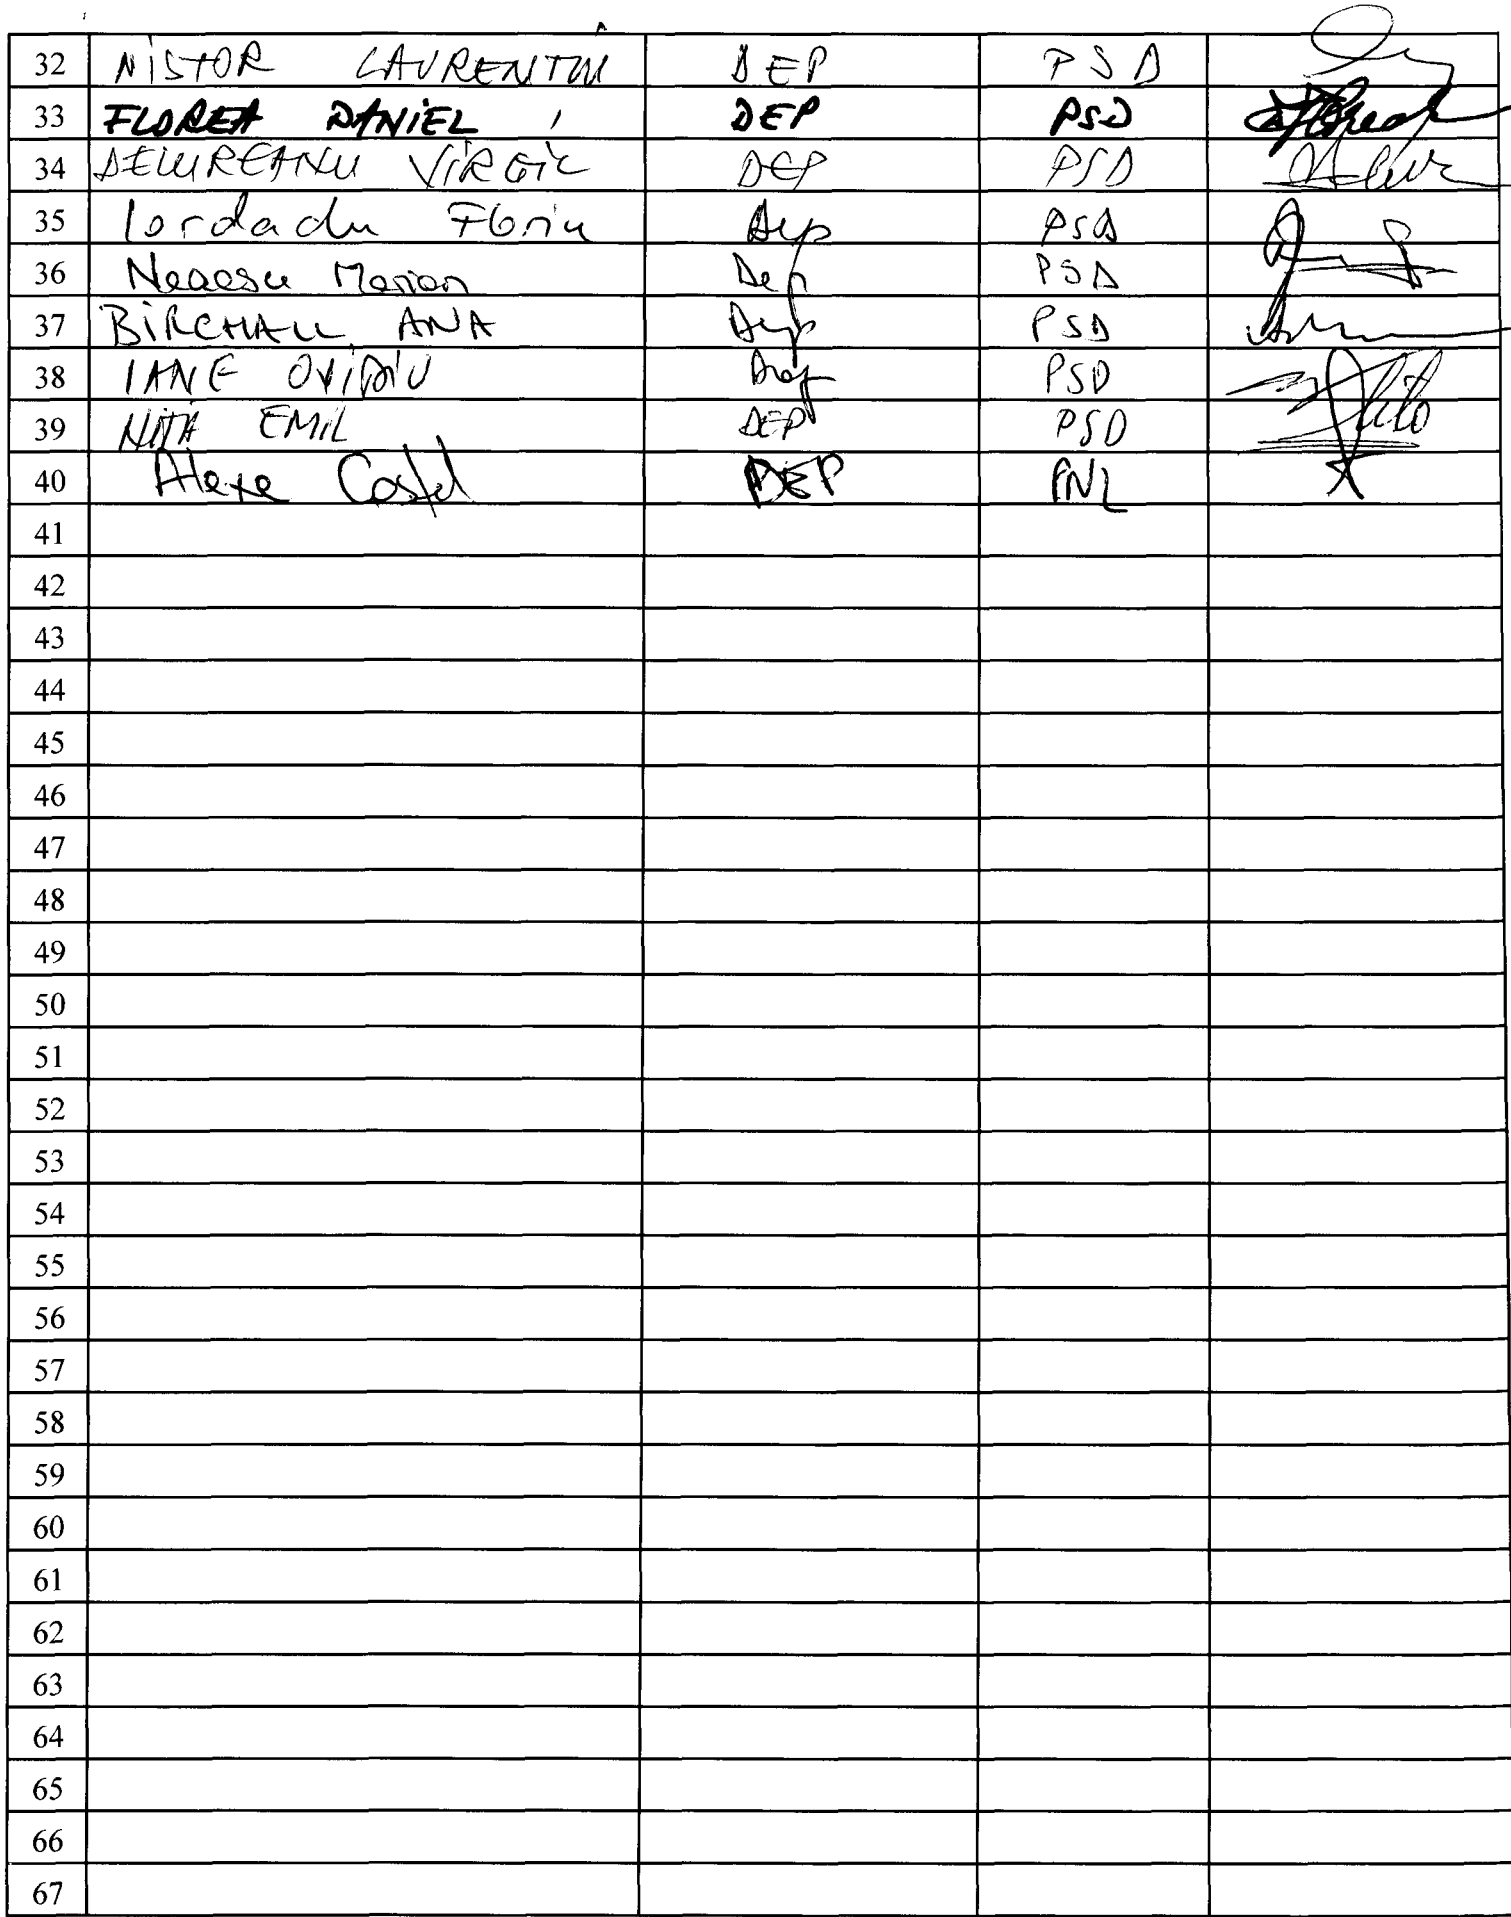 32 NISTOR LAURENTIU DEP PSD
33 FLOREA DANIEL DEP PSD
34 DELUREANU VIRGIL DEP PSD
35 Iordache Florin Dep PSD
36 Neacsu Marian Dep PSD
37 BIRCHALL ANA Dep PSD
38 IANE OVIDIU Dep PSD
39 NITA EMIL DEP PSD
40 Alexe Costel DEP PNL
41
42
43
44
45
46
47
48
49
50
51
52
53
54
55
56
57
58
59
60
61
62
63
64
65
66
67